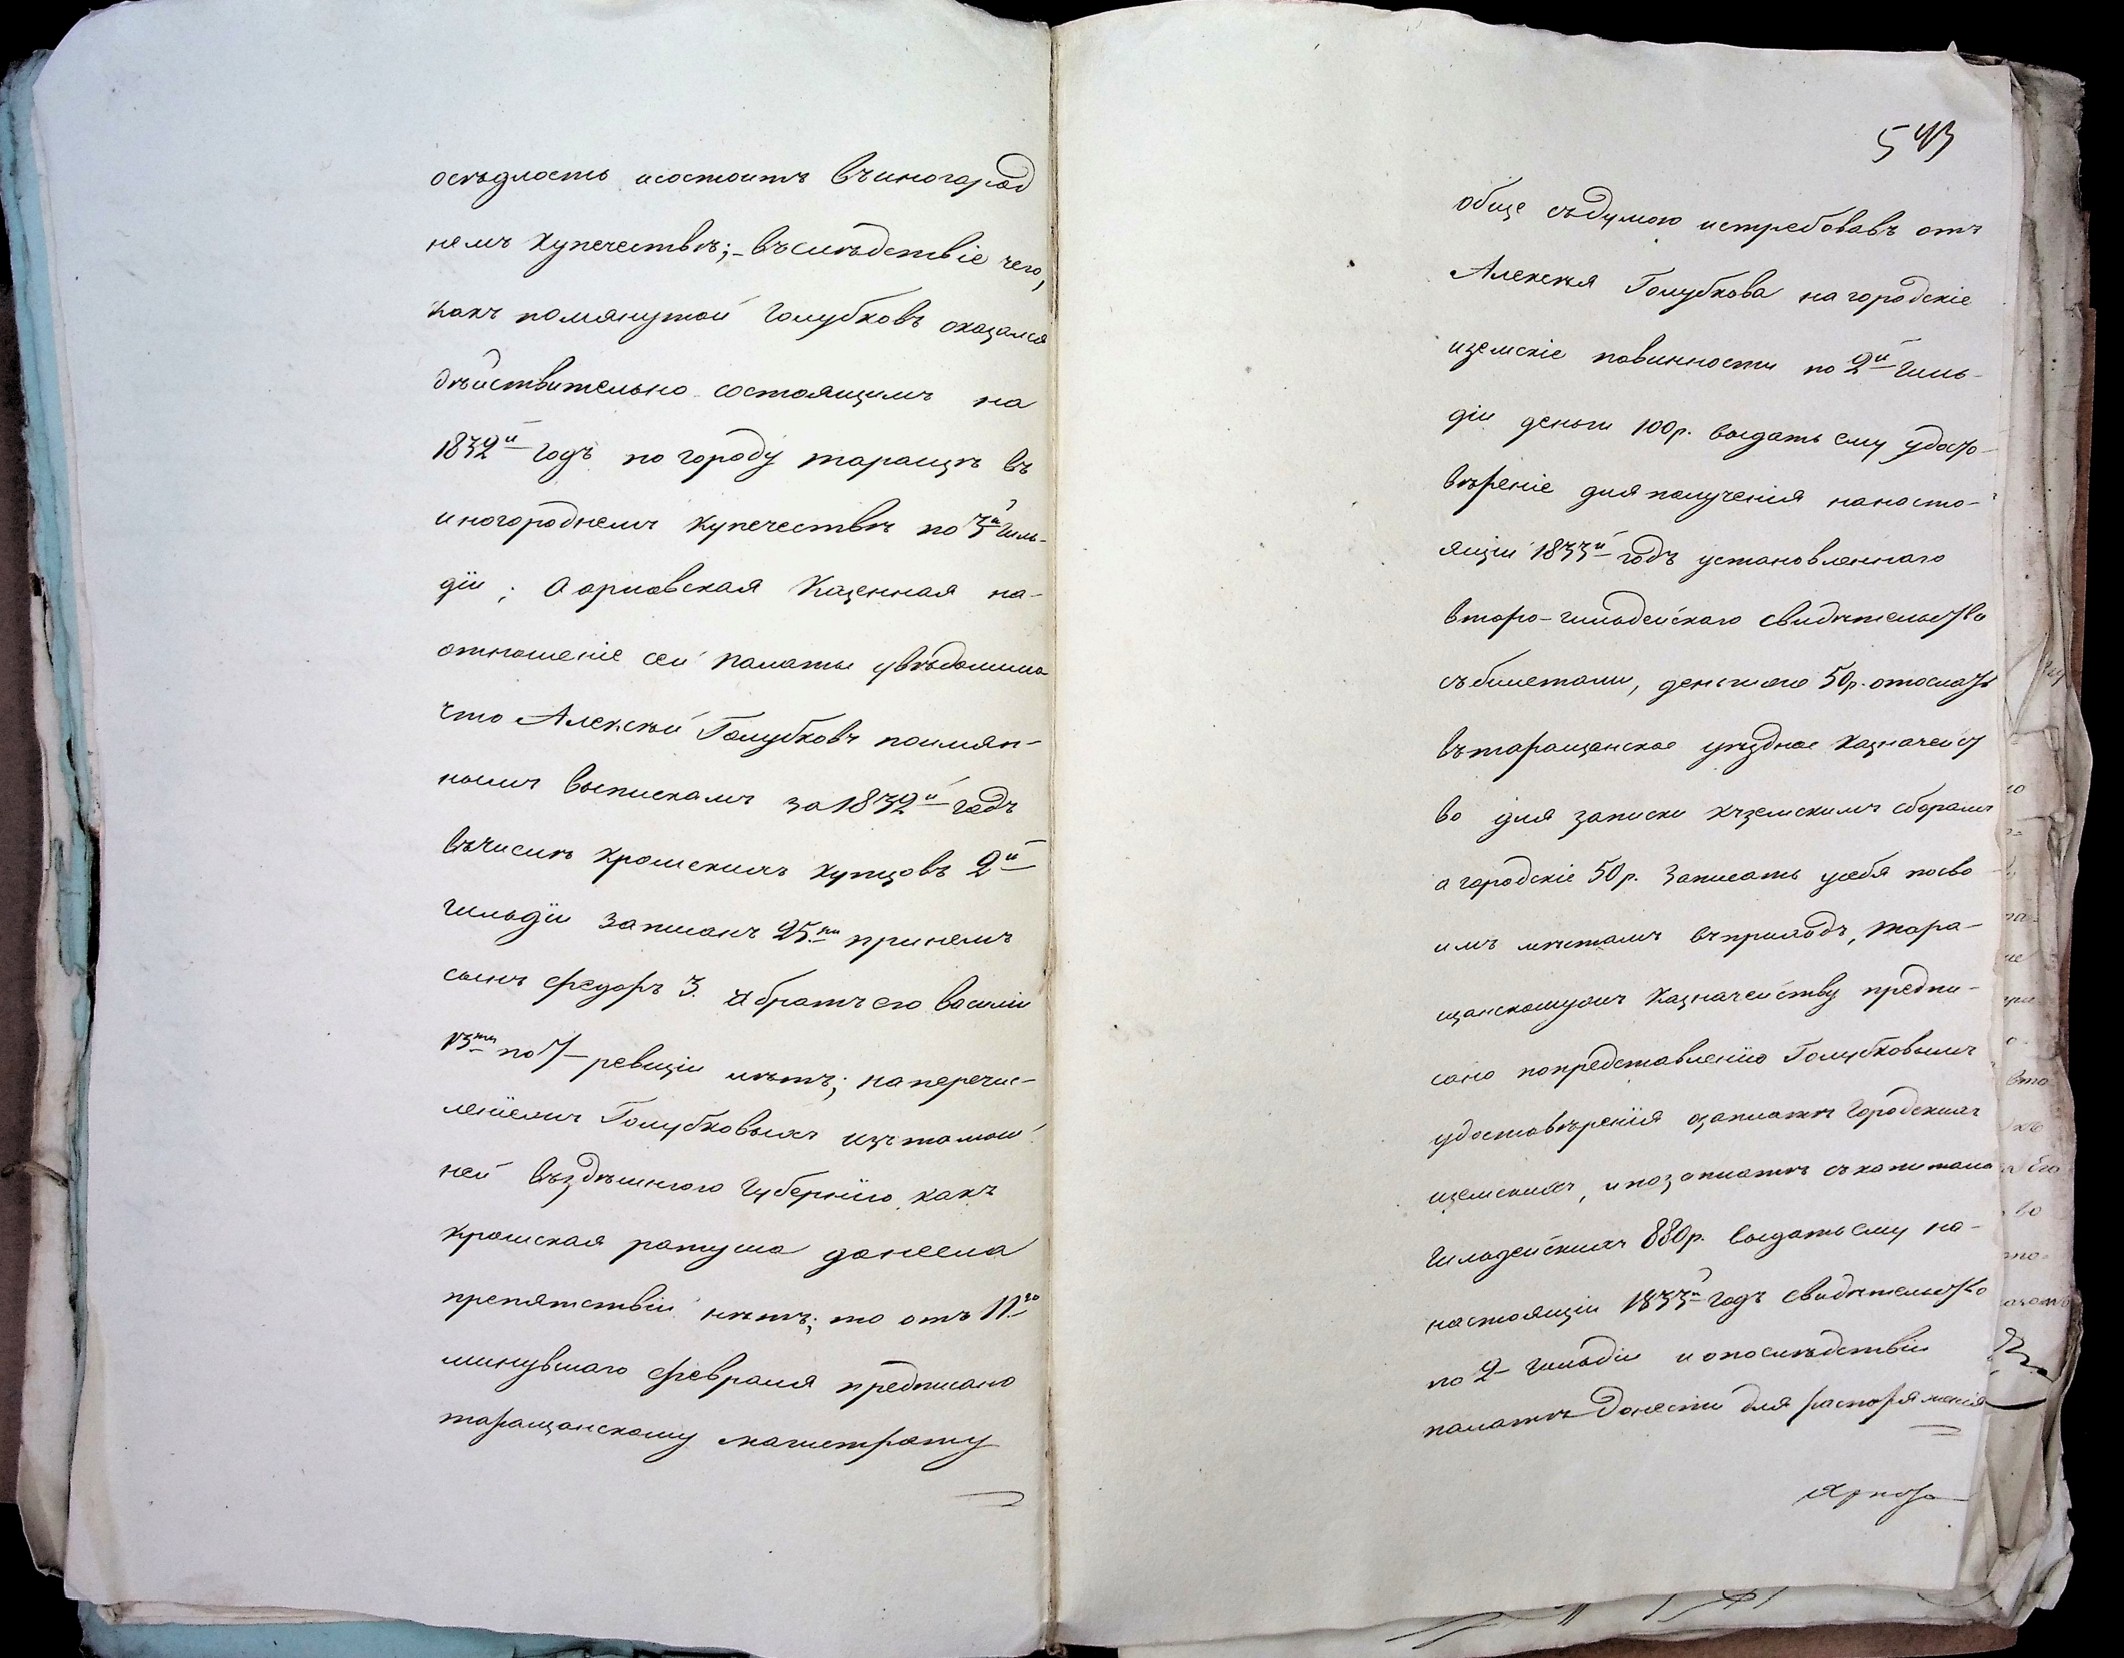 осѣдлость исостоитъ въиногород
немъ купечествѣ;- въслѣдствіе чего,
какъ помянутой Голубковъ оказался
дѣйствительно состоящимъ на
1832й годъ по городу таращѣ въ
иногороднемъ купечествѣ по 3й гиль-
діи; А орловская Казенная на-
отношеніе сей палаты увѣдомила
что Алексѣй Голубковъ поимян-
нымъ выпискамъ за 1832й годъ
въчислѣ кромскихъ купцовъ 2й
гильдіи записанъ 25ти принемъ
сынъ Федоръ 3. и братъ его василій
13ти по 7- ревизіи лѣтъ; наперечис-
леніемъ Голубковыхъ изъ тамош
ней въздѣшнюю Губернію, какъ
кромская ратуша донесла
препятствій нѣтъ; то отъ 11го
минувшаго февраля предписано
таращанскому магистрату
543
обще съдумою истребовавъ отъ
Алексѣя Голубкова на городскіе
иземскіе повинности по 2й гиль-
діи деньги 100р. выдать ему удосто-
вѣреніе для полученія нанасто-
ящій 1833й годъ установленнаго
второ-гильдейскаго свидѣтельства
събилетами, деньги же 50р. отослать
въ таращанское уѣздное казначейст
во для записки къземскимъ сборамъ
а городскіе 50р. записать усебя посво
имъ мѣстамъ въприходъ, тара-
щанскомужъ Казначейству предпи-
сано попредставленію Голубковымъ
удостовѣренія озаплатѣ городскихъ
иземскихъ, ипозаплатѣ съкапитала
гильдейскихъ 880р. выдать ему на-
настоящій 1833й годъ свидѣтельство
по 2- гильдіи и опослѣдствіи
палатѣ донести для распоряженія